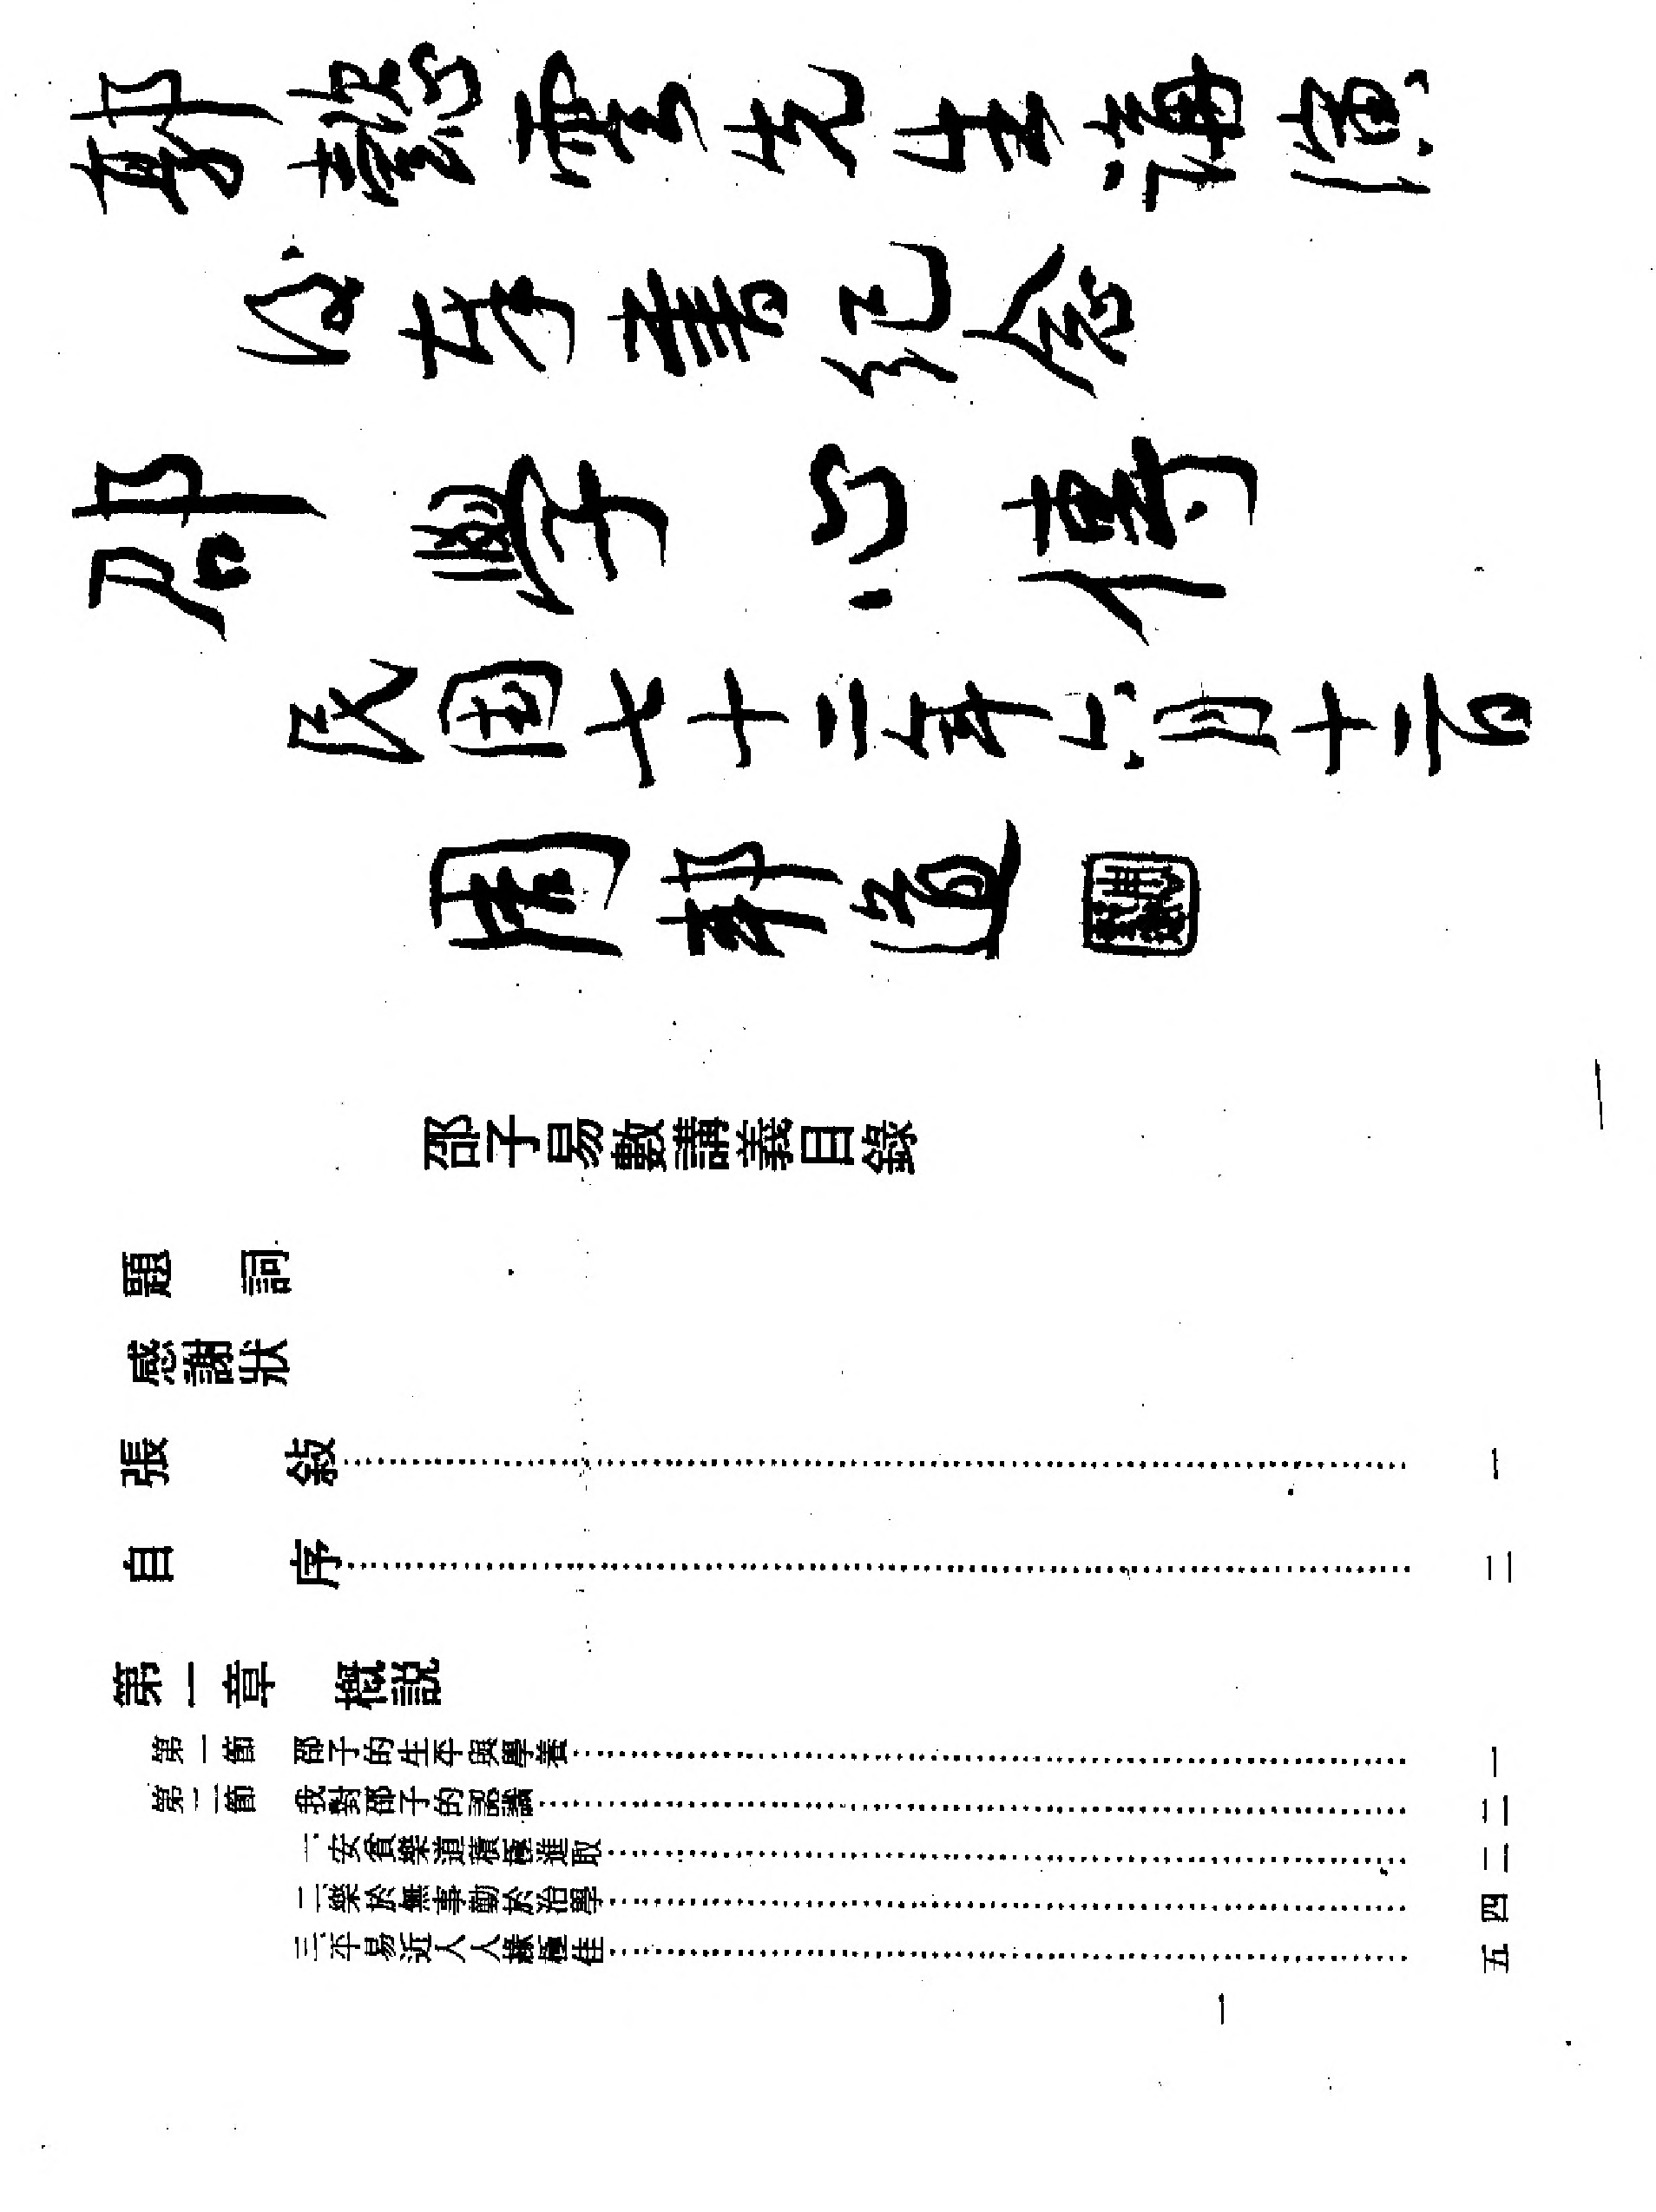 鄭燦雲先生講演
後專書紀念
邵學心傳
民國七十二年六月十二日
周邦道
邵子易數講義目錄
題 詞
感謝狀
張 敍 一
自 序 二
第一章 概説
第一節 邵子的生平與學養 一
第二節 我對邵子的認識 二
一、安貧樂道積極進取 二
二、樂於無事勤於治學 四
三、平易近人人緣極佳 五
一